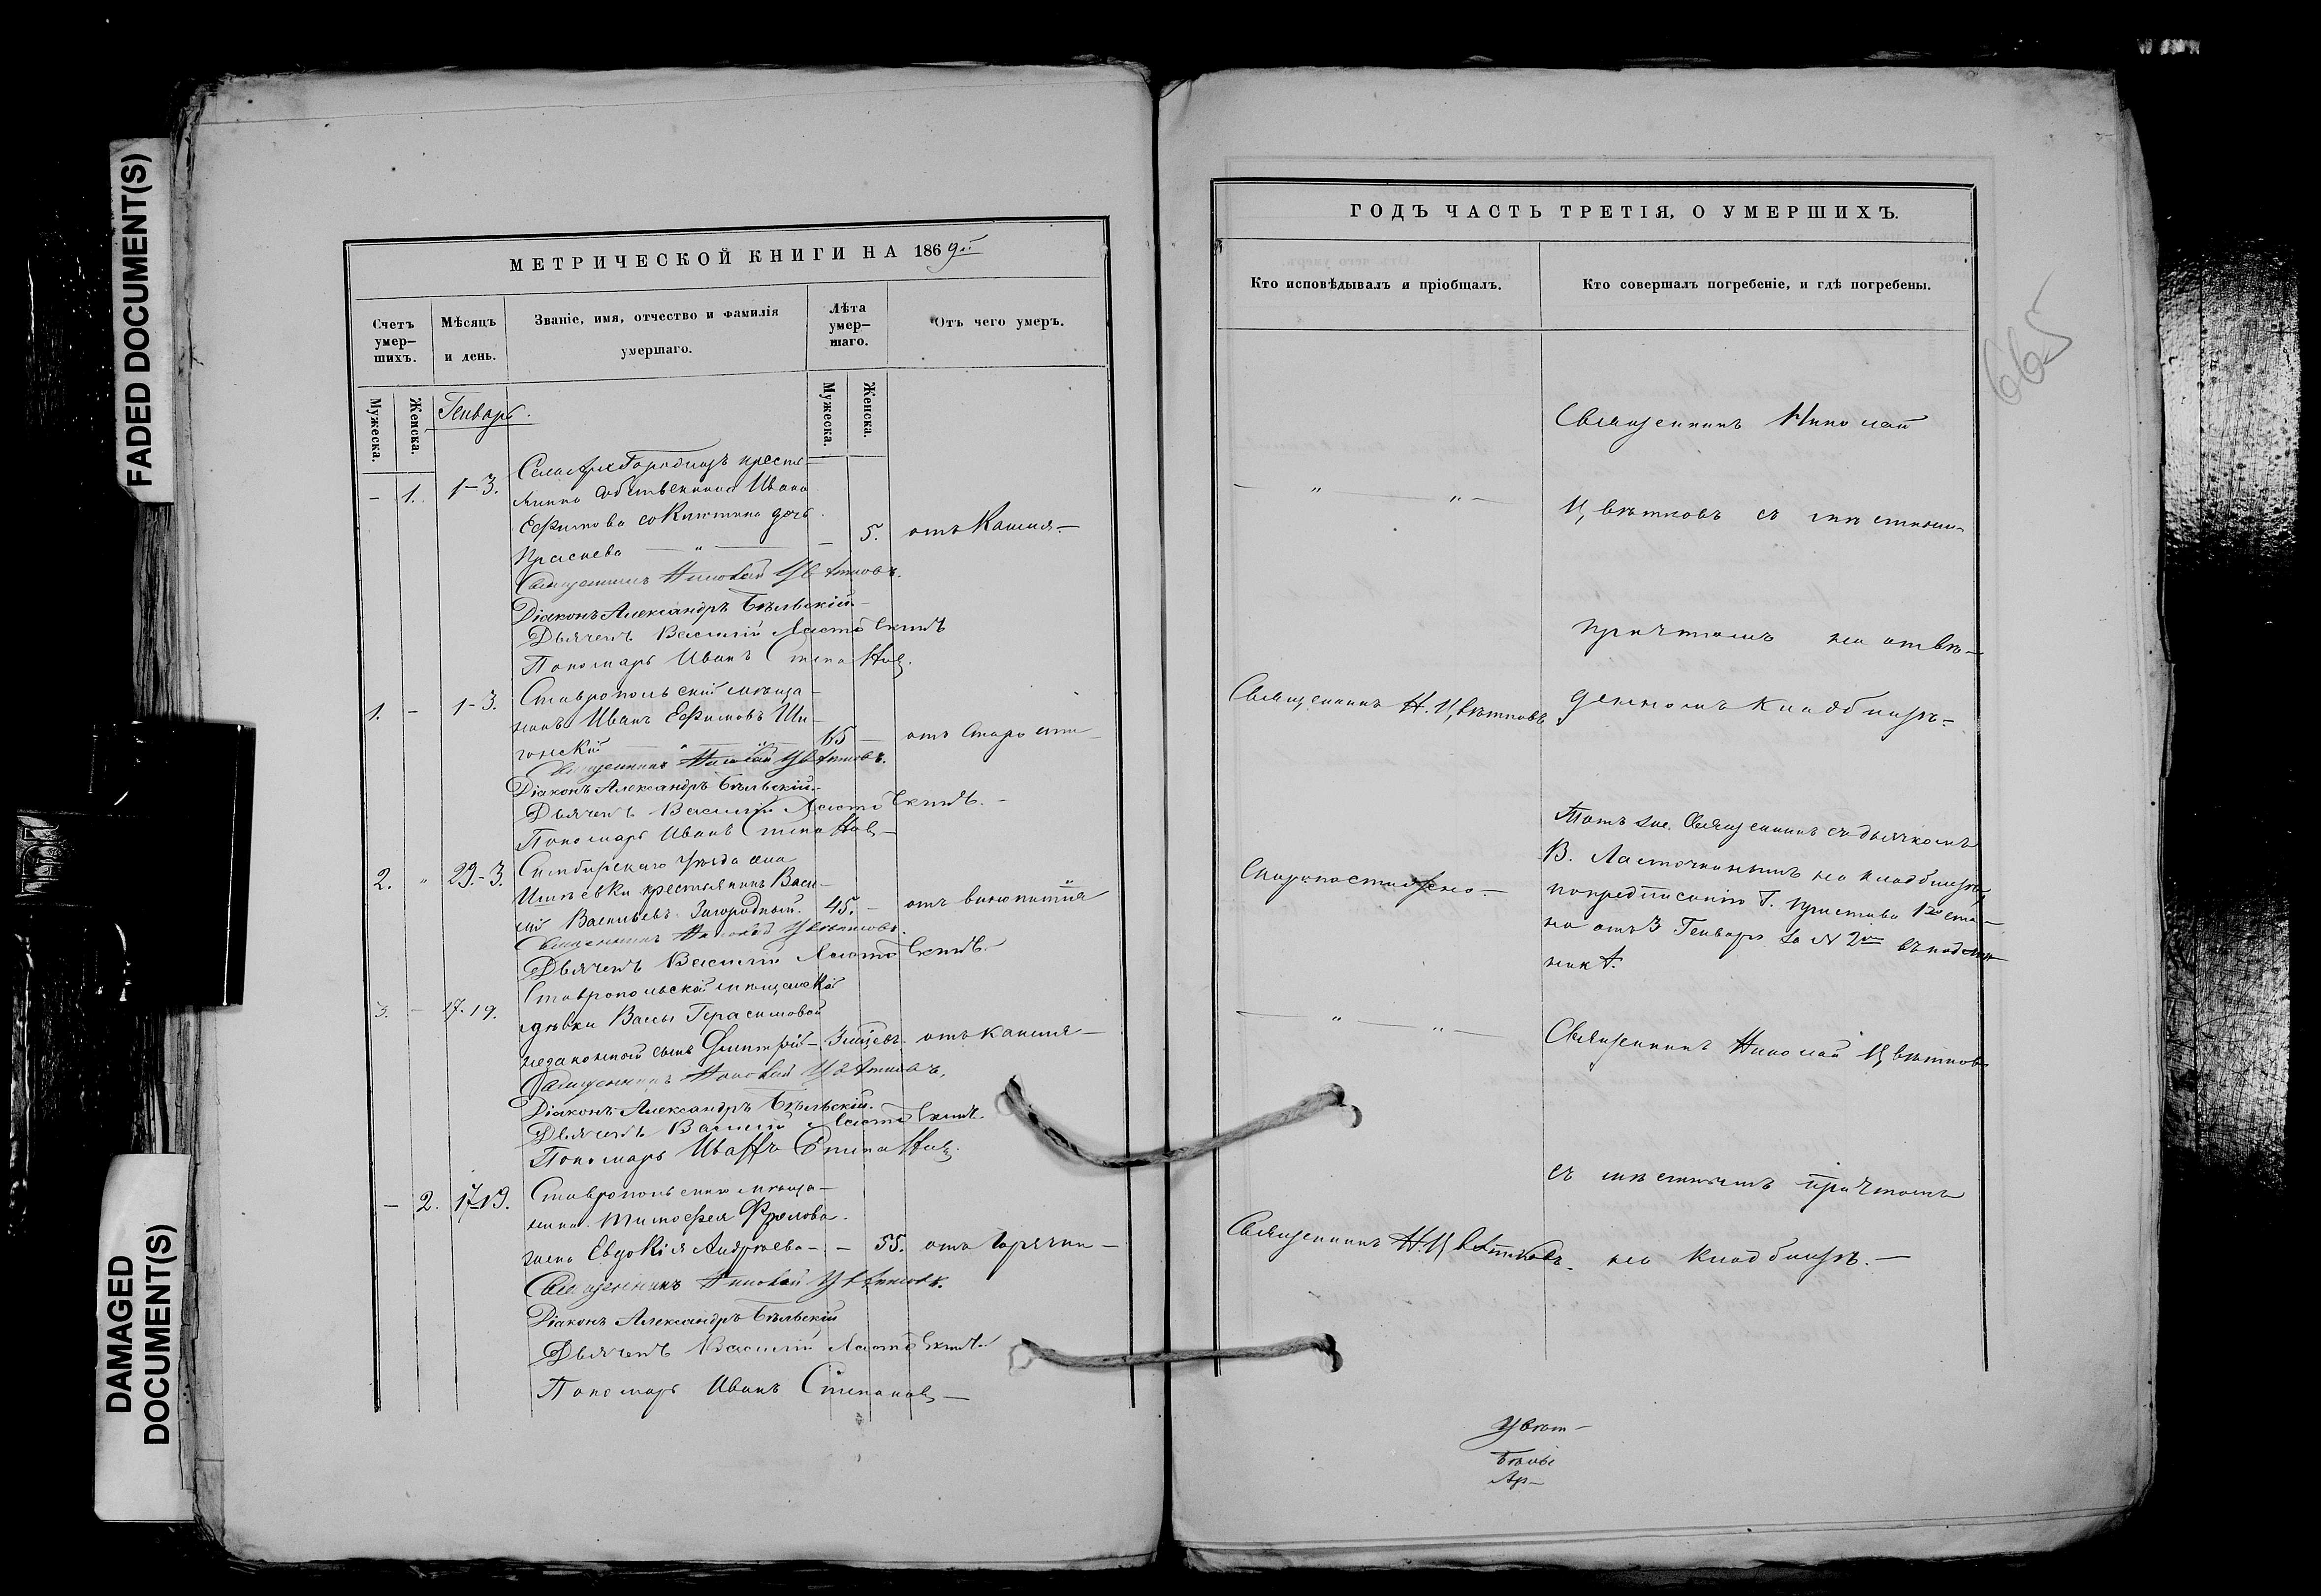 FADED DOCUMENT(S)
DAMAGED
DOCUMENT(S)
МЕТРИЧЕСКОЙ КНИГИ НА 1869й
Счетъ
умер-
шихъ.
Мѣсяцъ
и день.
Званіе, имя, отчество и фамилія
умершаго.
Лѣта
умер-
шаго.
Отъ чего умеръ.
Мужеска.
Женска.
Мужеска.
Женска.
Генварь.
- 1. 1-3.
Ивана
Ефимова дочь
- 5. отъ Кашля-
Священникъ Николай Цвѣтковъ.
Діаконъ Александръ Бѣльскій-
Дьячекъ Василій Ласточкинъ
Пономарь Иванъ Степановъ.
1. - 1-3. Ставропольскій мѣща-
нинъ Иванъ Ефимовъ Ши-
гонскій 65 - отъ старости-
Священникъ Николай Цвѣтковъ.
Діаконъ Александръ Бѣльскій-
Дьячекъ Василій Ласточкинъ.-
Пономарь Иванъ Степановъ-
2. " 29.-3. Симбирскаго Уѣзда села
крестьянинъ Васи-
лій Васильевъ Загородный. 45. - отъ винопитія
Священникъ Николай Цвѣтковъ.
Дьячекъ Василій Ласточкинъ.
3. - 17-19. Ставропольской мѣщанской
дѣвки Вассы Герасимовой
незаконный сынъ Дмитрій- 3 мѣсяц. отъ кашля-
Священникъ Николай Цвѣтковъ.
Діаконъ Александръ Бѣльскій.
Дьячекъ Василій Ласточкинъ.
Пономарь Иванъ Степановъ.
- 2. 17-19. Ставропольскаго мѣща-
нина Тимофея Фролова
жена Евдокія Андреева- - 55. отъ горячки-
Священникъ Николай Цвѣтковъ.
Діаконъ Александръ Бѣльскій
Дьячекъ Василій Ласточкинъ.
Пономарь Иванъ Степановъ-
ГОДЪ ЧАСТЬ ТРЕТІЯ, О УМЕРШИХЪ.
Кто исповѣдывалъ и пріобщалъ.
Кто совершалъ погребеніе, и гдѣ погребены.
665
Священникъ Николай
Цвѣтковъ съ мѣстнымъ
причтомъ на отве-
Священникъ Н. Цвѣтковъ
денномъ кладбищѣ.-
Тотъ же Священникъ съ дьячкомъ
В. Ласточкинымъ на кладбищѣ
Скоропостижно.-
по предписанію Г. пристава 1го ста-
на отъ 3 Генваря за № 2мъ
Священникъ Николай Цвѣтковъ
съ мѣстнымъ причтомъ
Священникъ Н. Цвѣтковъ. на кладбищѣ.-
Цвѣт-